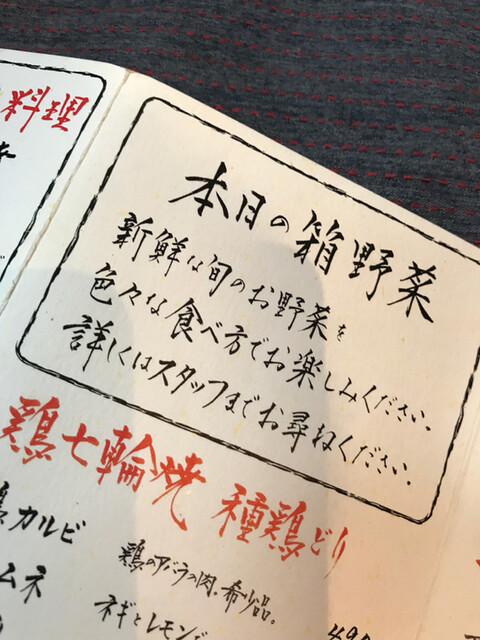 料理
本日の箱野菜
新鮮な旬のお野菜を
色々な食べ方でお楽しみください。
詳しくはスタッフまでお尋ねください。
鶏七輪焼 種鶏どり
カルビ
鶏のアバラの肉。希少品。
ムネ
ネギとレモンだ